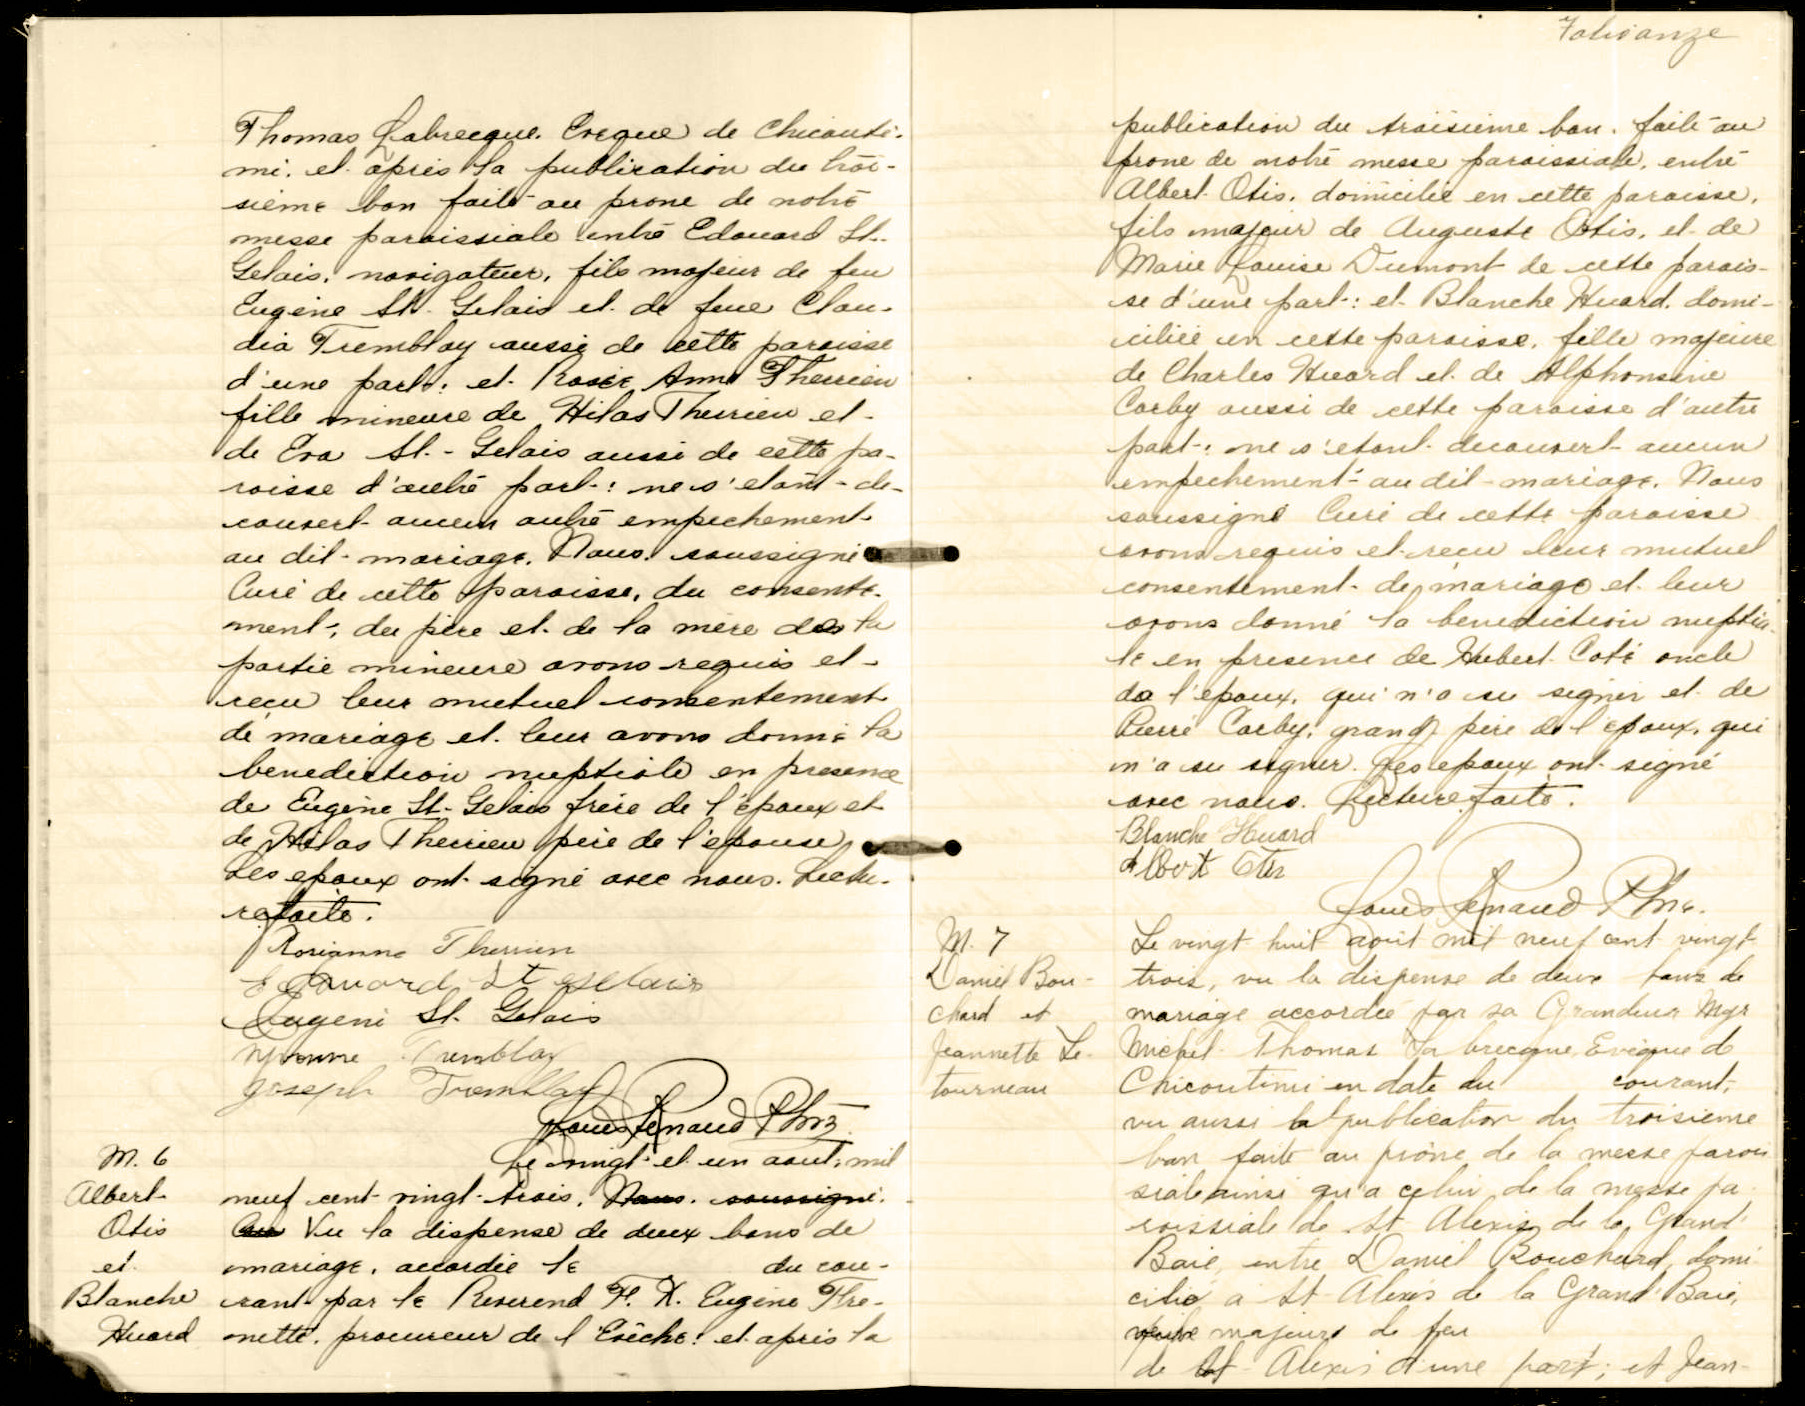 Thomas Labrecque. Eveque de Chicouti-
mi. et après la publication du troi-
sieme ban faite au prone de notre
messe paroissiale entre Edouard St.-
Gelais, navigateur, fils majeur de feu
Eugène St. Gelais et de feue Clau-
dia Tremblay aussi de cette paroisse
d'une part: et Rose Anna Therrien
fille mineure de Hilas Therrien et
de Eva St.-Gelais aussi de cette pa-
roisse d'autre part: ne s'etant de-
couvert aucun autre empechement
au dit mariage. Nous, soussigné
Curé de cette paroisse, du consente-
ment, du père et de la mère de la
partie mineure avons requis et
reçu leur mutuel consentement
de mariage et leur avons donné la
benediction nuptiale en presence
de Eugène St-Gelais frère de l'époux et
de Hilas Therrien père de l'epouse
Les epoux ont signé avec nous. Lectu-
re faite.
Rorianne Therrien
Edouard St Gelais
Eugene St. Gelais
Yvonne Tremblay
Joseph Tremblay
Louis Renaud Ptre
M. 6
Albert
Otis
et
Blanche
Huard
Le vingt et un aout, mil
neuf cent vingt-trois. Nous. soussigné.
Vu la dispense de deux bans de
mariage, accordée le du cou-
rant par le Reverend F. X. Eugène Fre-
nette, procureur de l'Evêché: et après la
publication du troisieme ban. faite au
prone de notre messe paroissiale, entre
Albert Otis, domicilié en cette paroisse,
fils majeur de Auguste Otis, et de
Marie Louise Dumont de cette parois-
se d'une part: et Blanche Huard, domi-
ciliée en cette paroisse, fille majeure
de Charles Huard et de Alphonsine
Corby aussi de cette paroisse d'autre
part: ne s'etant decouvert aucun
empechement au dit mariage. Nous
soussigné Curé de cette paroisse
avons requis et reçu leur mutuel
consentement de mariage et leur
avons donné la benediction nuptia-
le en presence de Hubert Coté oncle
de l'epoux, qui n'a su signer et de
Pierre Corby, grand père de l'epoux, qui
n'a su signer. Les epoux ont signé
avec nous. Lecture faite.
Blanche Huard
Albert Otis
Louis Renaud Ptre.
M. 7
Daniel Bou-
chard et
Jeannette Le-
tourneau
Le vingt huit août mil neuf cent vingt
trois, vu la dispense de deux bans de
mariage accordée par sa Grandeur Mgr
Michel Thomas La brecque, Evêque de
Chicoutimi en date du courant,
vu aussi la publication du troisième
ban faite au prône de la messe parois
siale ainsi qu'a celui de la messe pa
roissiale de St Alexis de la Grand'
Baie, entre Daniel Bouchard, domi
cilié a St Alexis de la Grand' Baie,
majeur de feu
de St Alexis d'une part; et Jean-